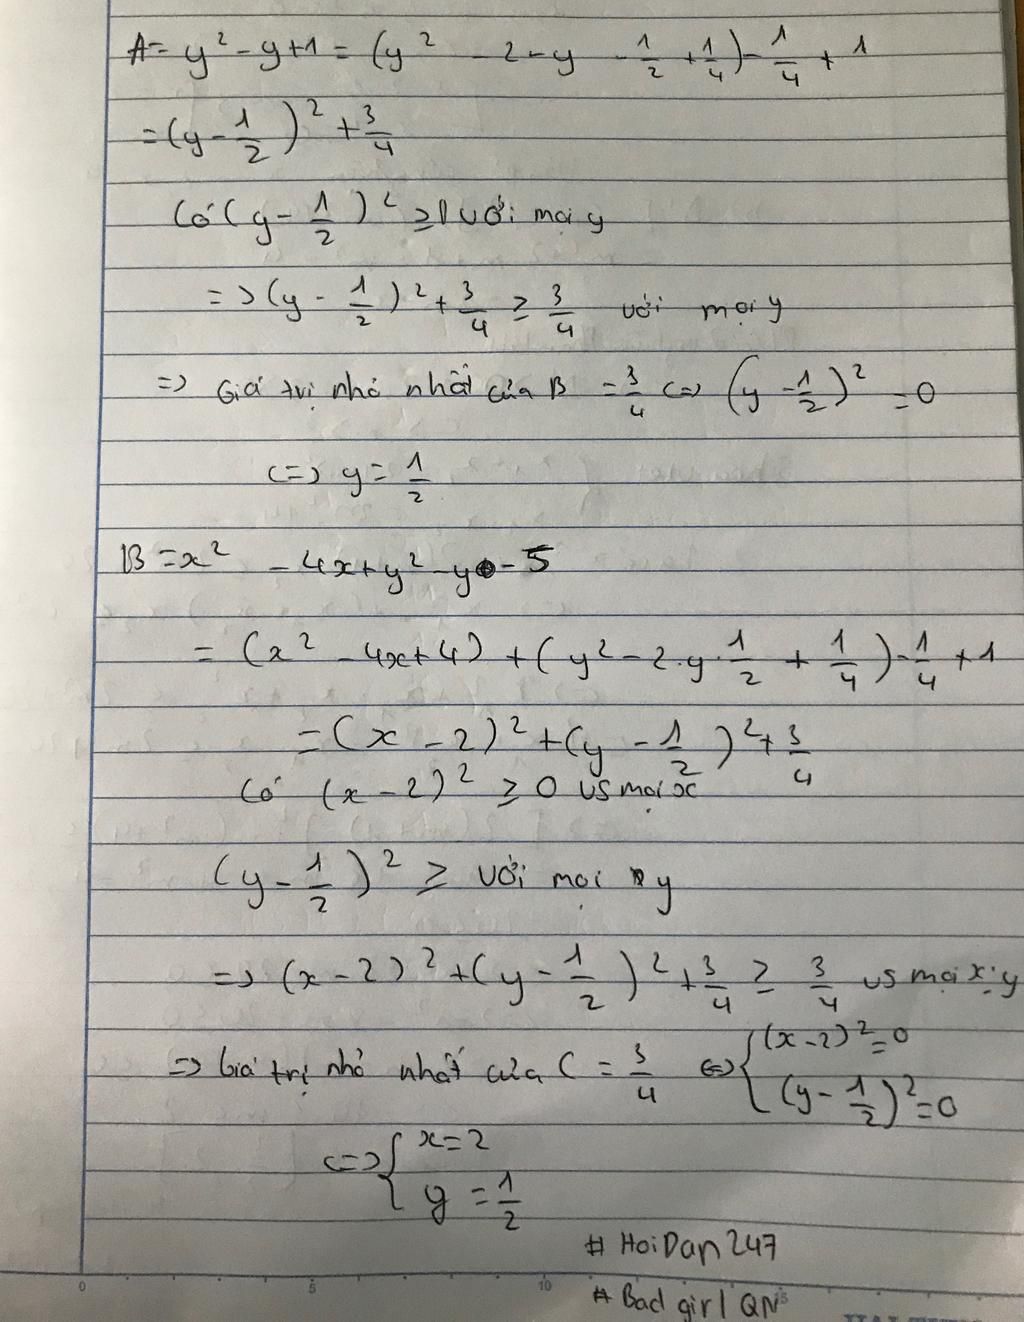 A = y² - y + 1 = (y² - 2 - y - 1/2 + 1/4) - 1/4 + 1
= (y - 1/2)² + 3/4
Có (y - 1/2)² ≥ với mọi y
=> (y - 1/2)² + 3/4 ≥ 3/4 với mọi y
=> Giá trị nhỏ nhất của B = 3/4 <=> (y - 1/2)² = 0
<=> y = 1/2
B = x² - 4x + y² - y - 5
= (x² - 4x + 4) + (y² - 2.y.1/2 + 1/4) - 1/4 + 1
= (x - 2)² + (y - 1/2)² + 3/4
Có (x - 2)² ≥ 0 vs mọi x
(y - 1/2)² ≥ với mọi y
=> (x - 2)² + (y - 1/2)² + 3/4 ≥ 3/4 vs mọi x; y
=> Giá trị nhỏ nhất của C = 3/4 <=> { (x - 2)² = 0
(y - 1/2)² = 0
<=> { x = 2
y = 1/2
# HoiDap247
# Bad girl QN
0 5 10 15